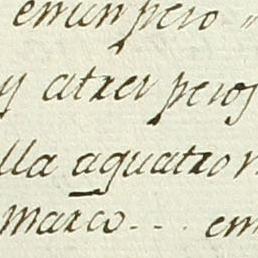 emun pero
y atrer peros
lla aquatro
marco... em